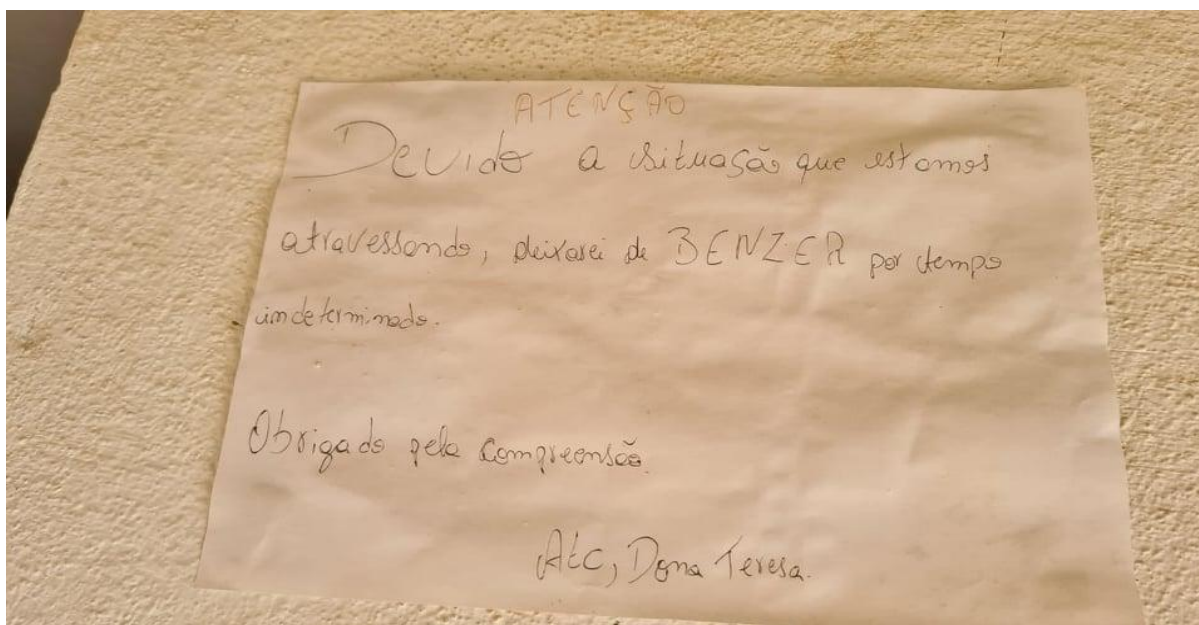 ATENÇÃO
Devido a situação que estamos
atravessando, deixarei de BENZER por tempo
indeterminado.
Obrigado pela compreensão.
Atc, Dona Teresa.